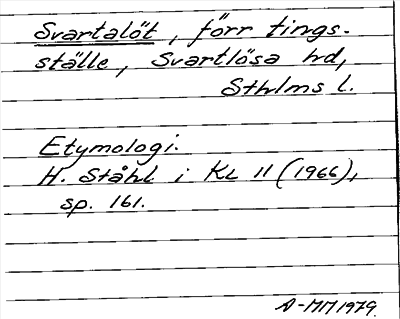 Svartalöt, förr tings-
ställe, Svartlösa hd,
Sthlms l.
Etymologi.
H. Ståhl i KL 11 (1966),
sp. 161.
A-MM1979.